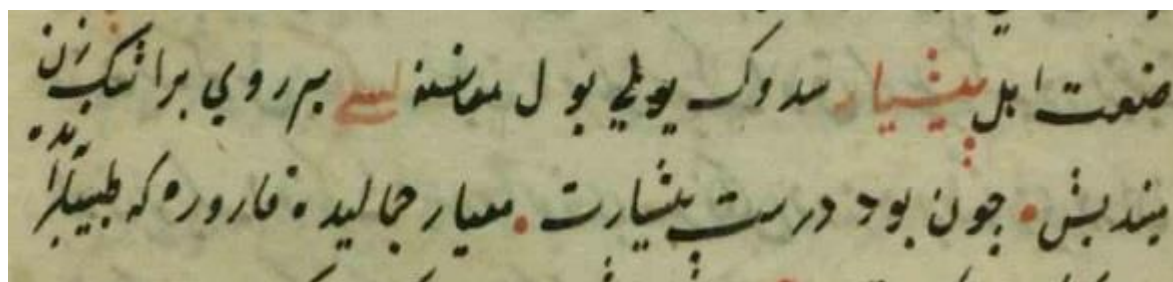 صنعت اهل پیشیار سدوک یوبلي بول معناسنه لسے بر روي براشک زن
بندبش • چون بود درست پیشیارت • معیار جمالیده قاروره که طبیبلره